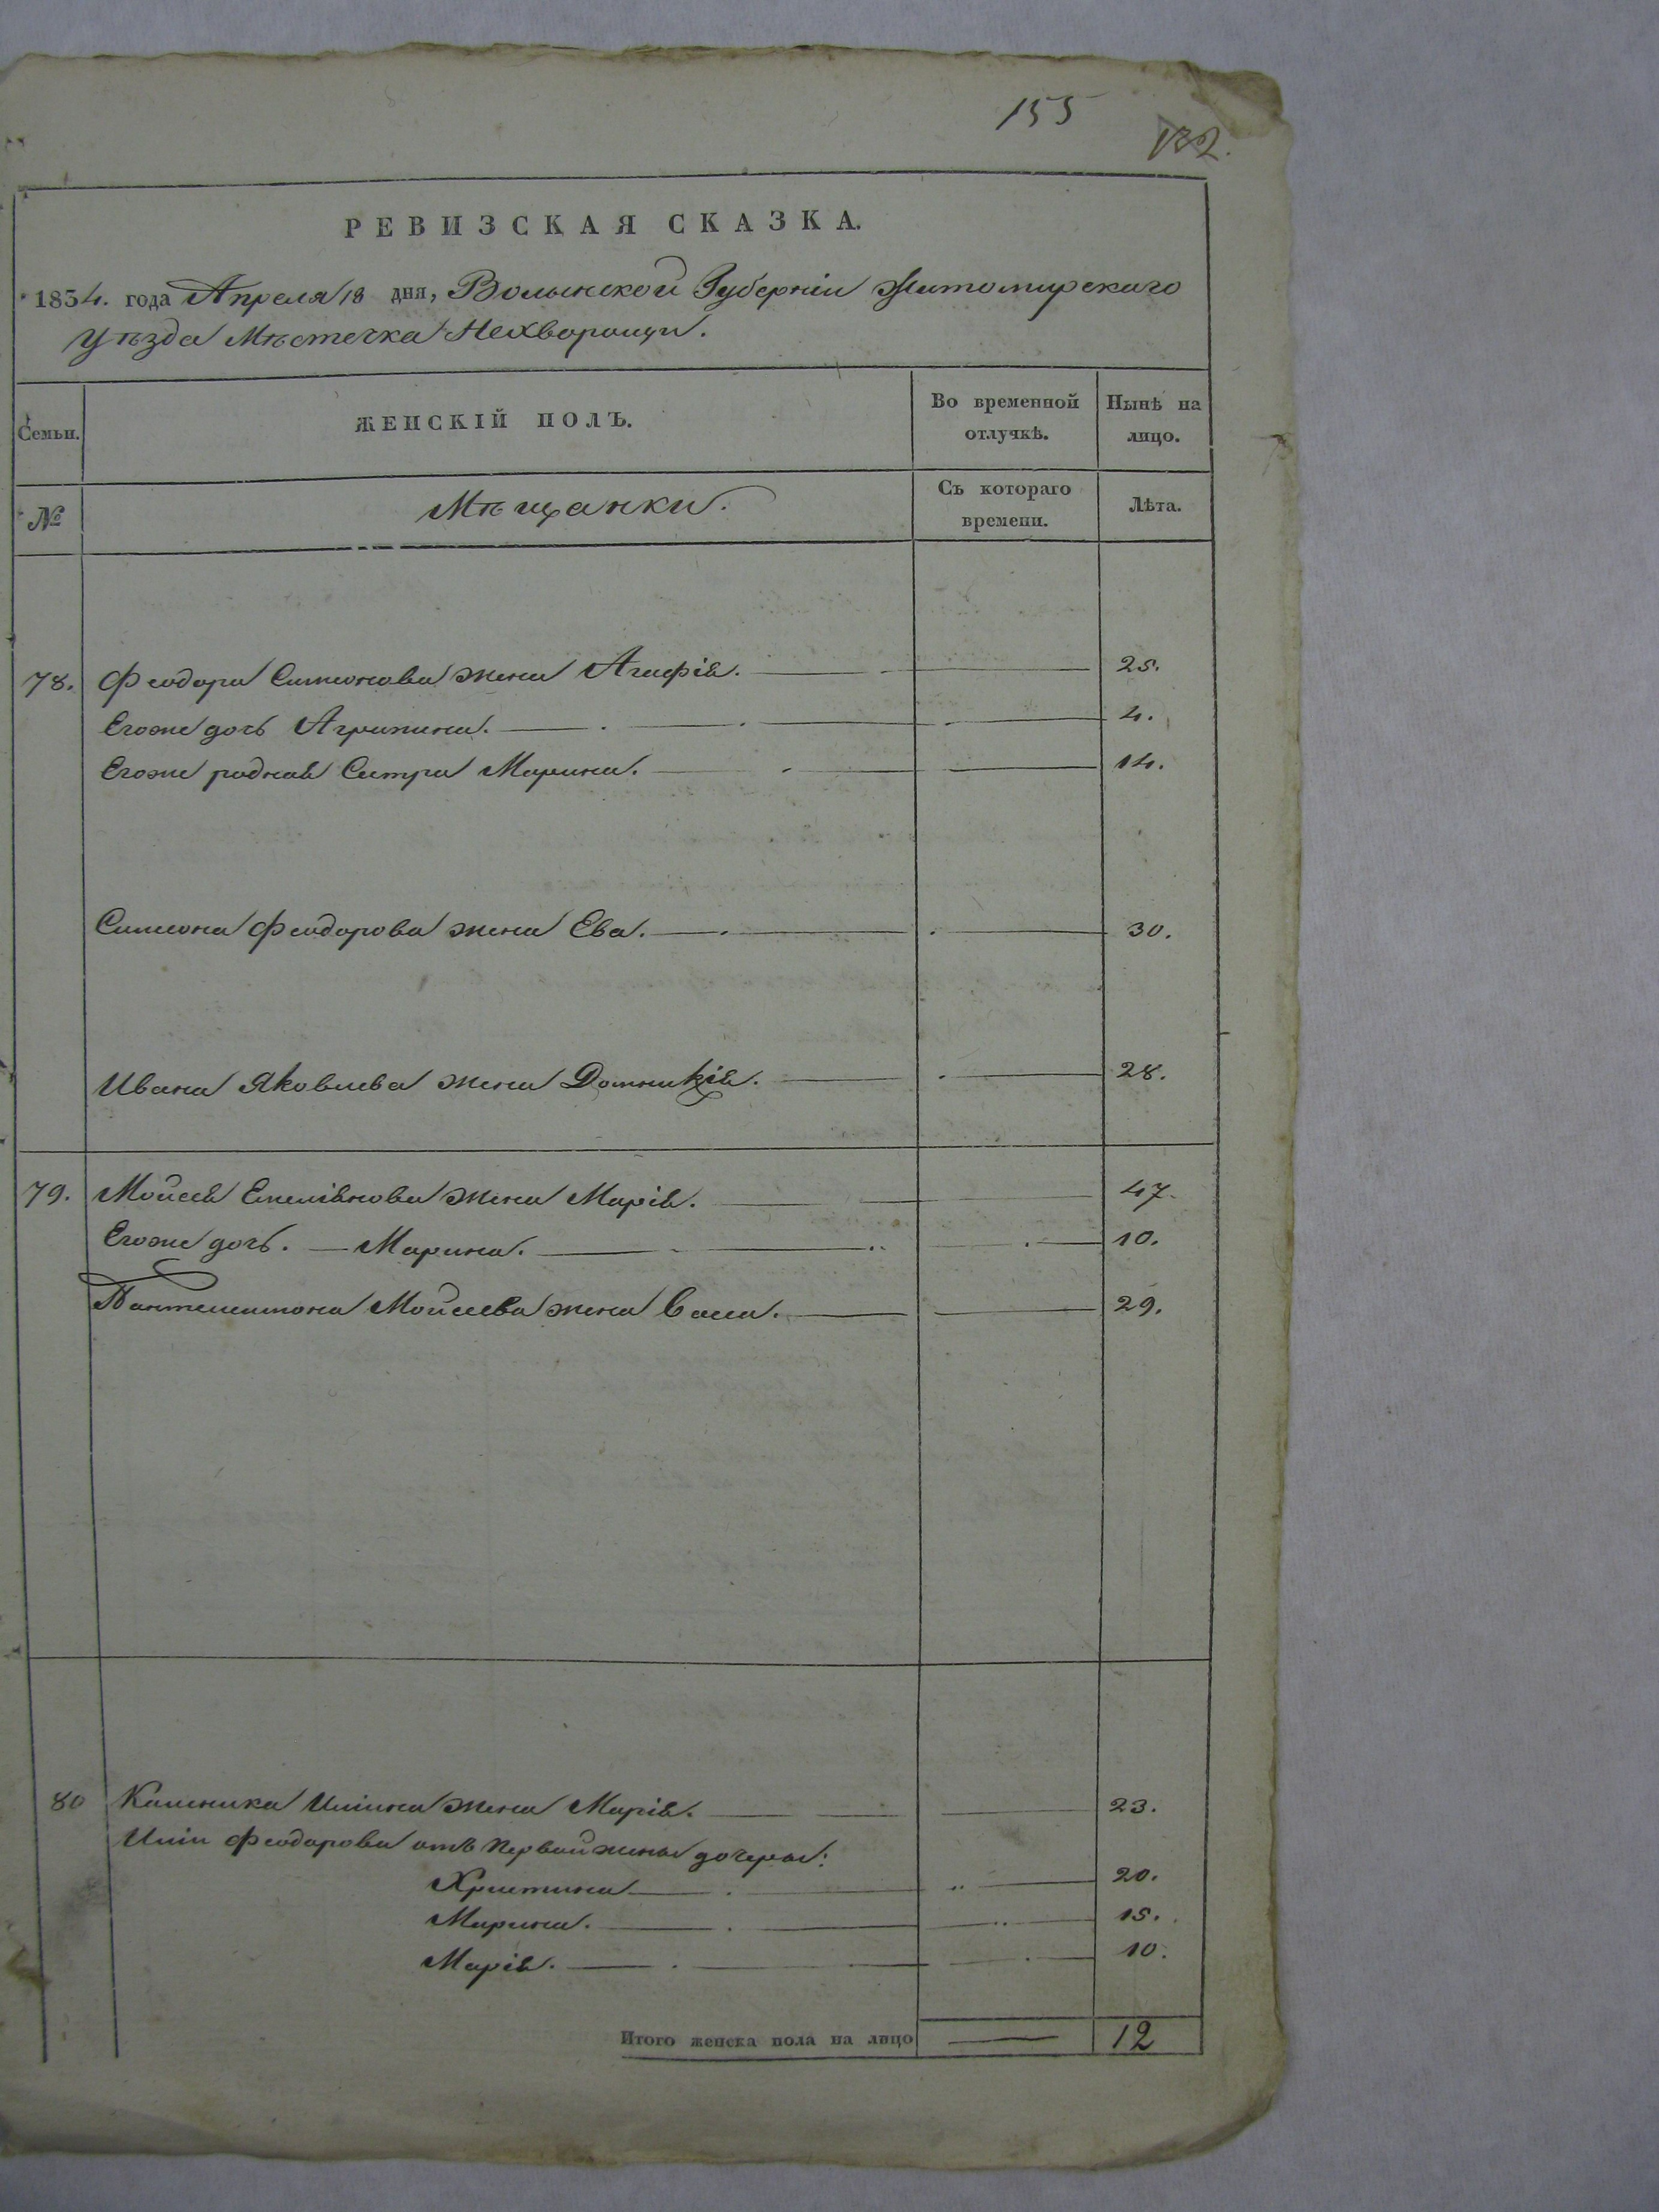 155
132.
РЕВИЗСКАЯ СКАЗКА.
1834. года Апреля 18 дня, Волынской Губерніи Житомирскаго
Уѣзда Мѣстечка Нехворощи.
Семьи.
ЖЕНСКІЙ ПОЛЪ.
Во временной отлучкѣ.
Нынѣ на лицо.
№
Мѣщанки.
Съ котораго времени.
Лѣта.
78. Феодора Симеонова жена Агафія. 25.
Егоже дочь Агрипина. 4.
Егоже родная Сестра Марина. 14.
Симеона Феодорова жена Ева. 30.
Ивана Яковлева жена Домникія. 28.
79. Мойсея Емеліянова жена Марія. 47.
Егоже дочь. Марина. 10.
Пантелеимона Мойсеева жена 29.
80 Калиника Иліина жена Марія. 23.
Иліи Феодорова отъ первой жены дочеры:
Христина 20.
Марина. 15.
Марія. 10.
Итого женска пола на лицо 12